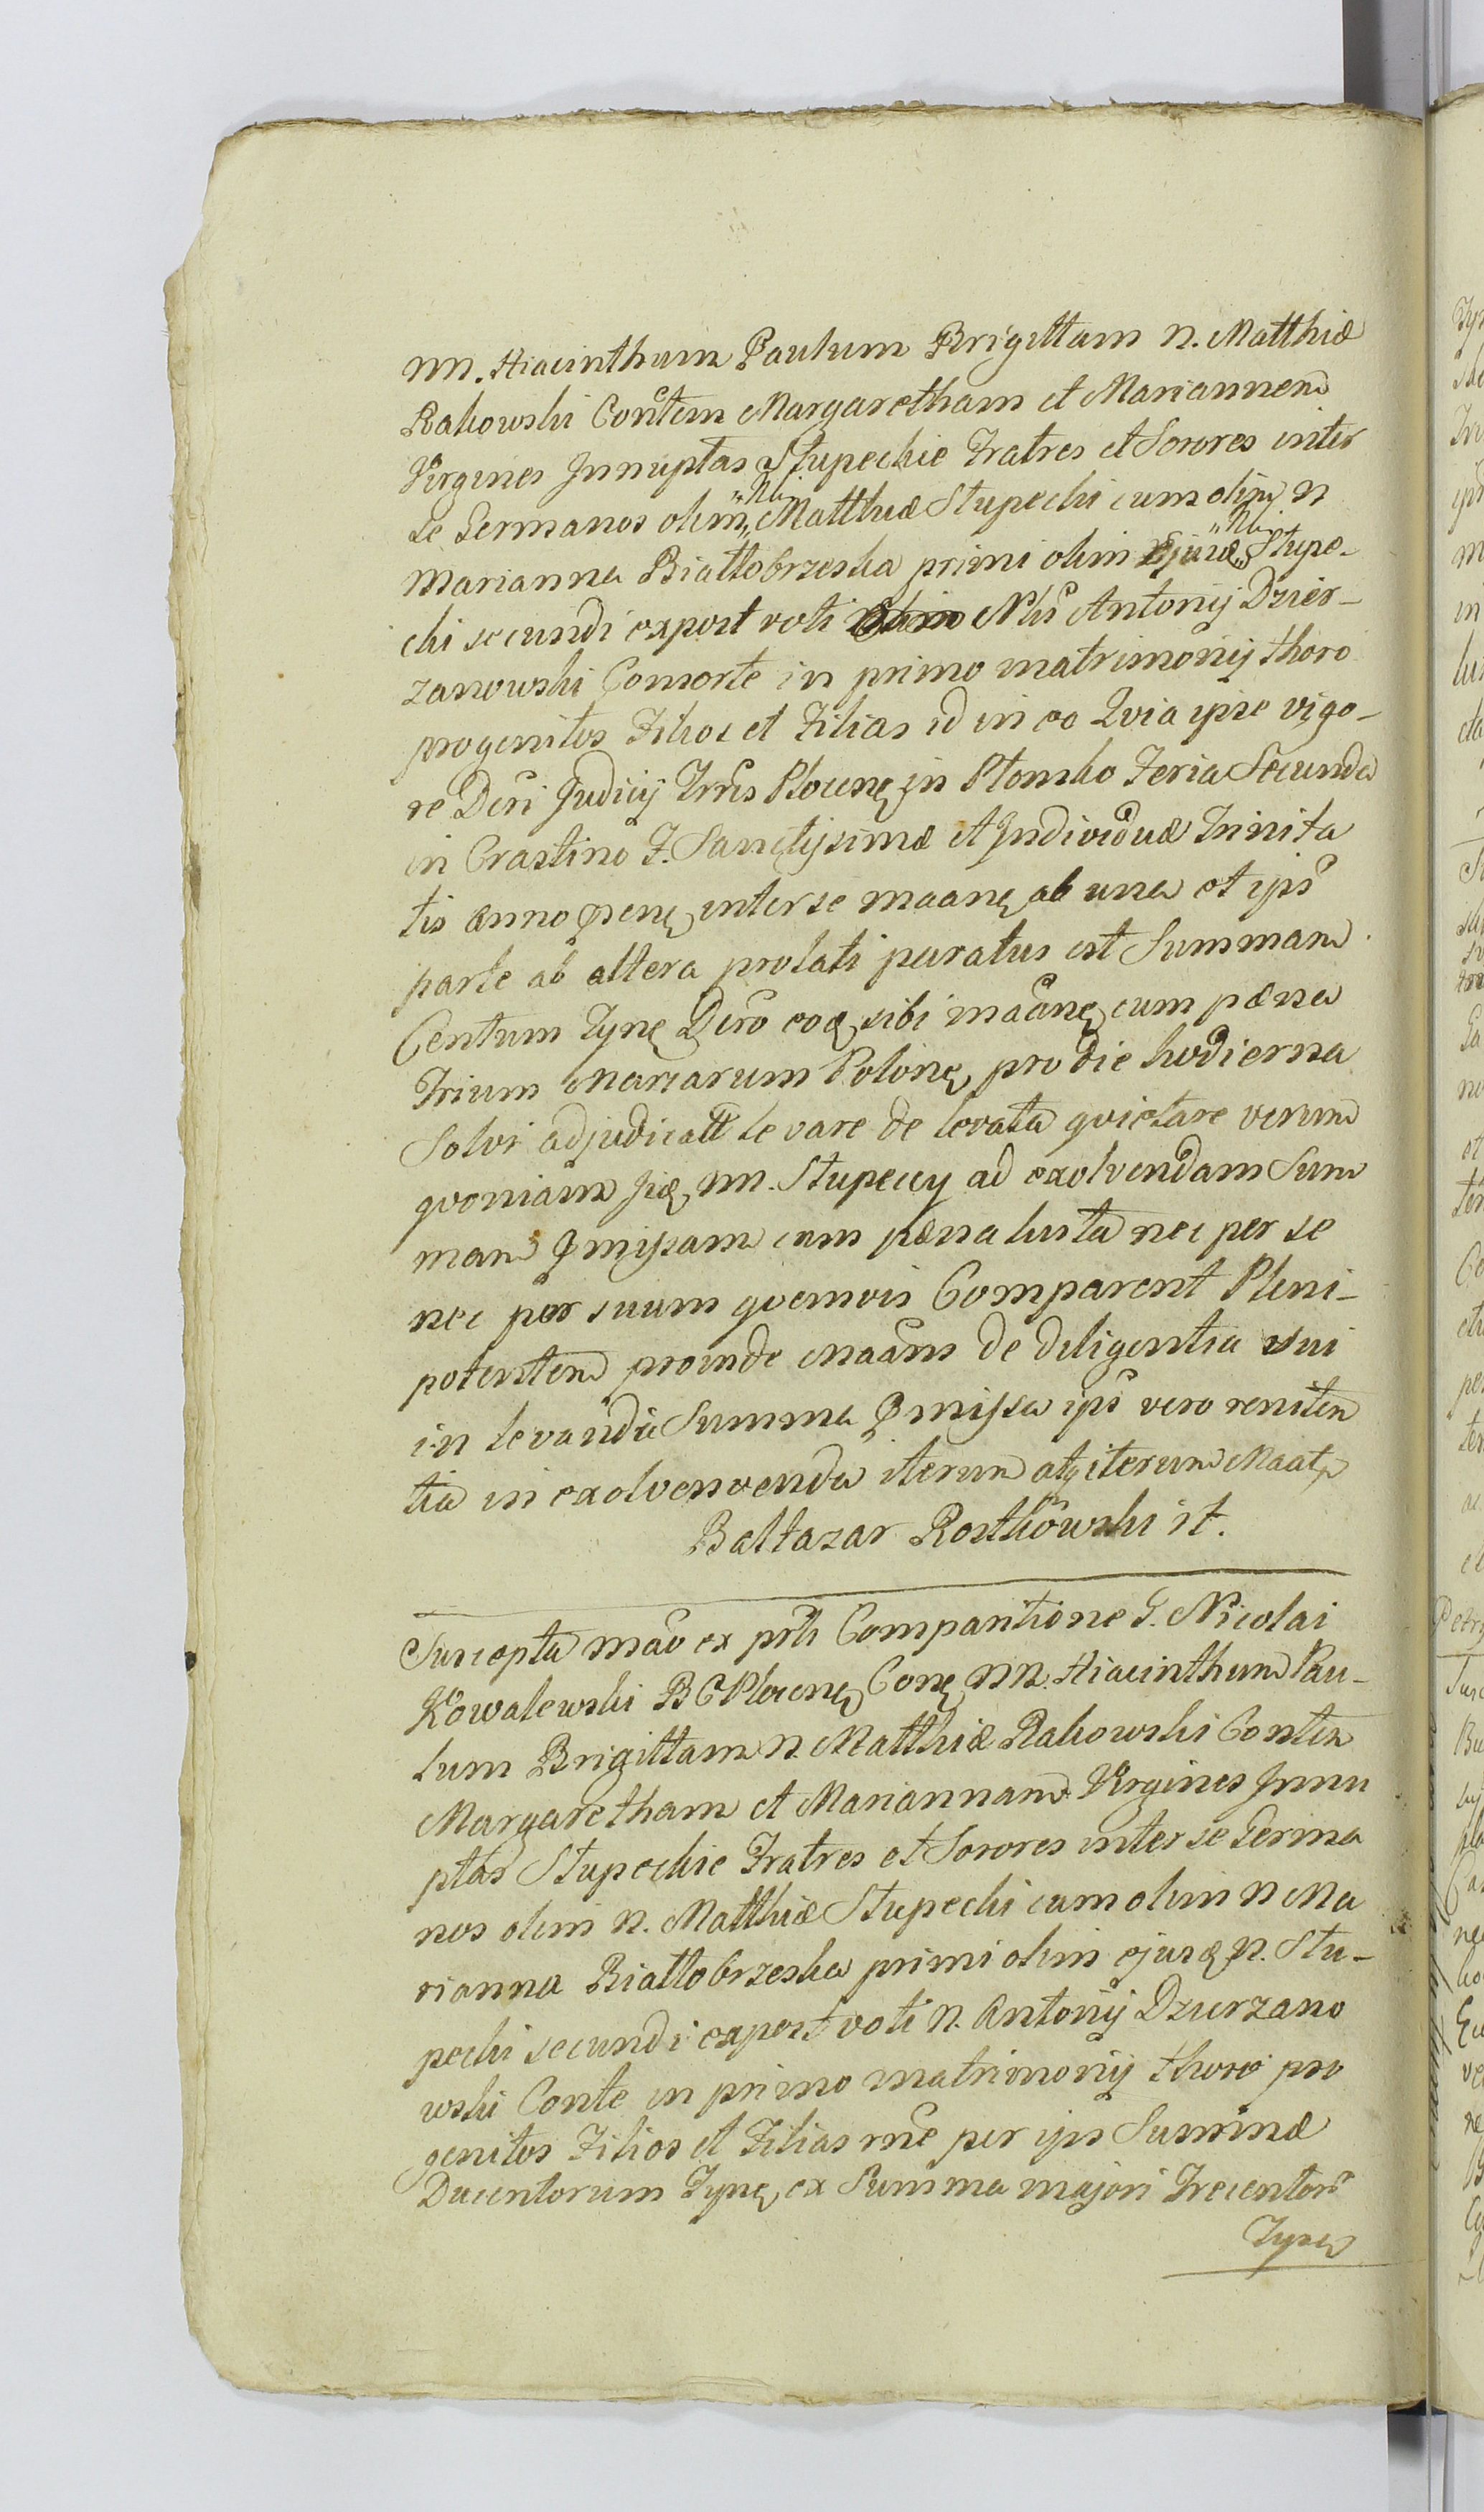 NN. Hiacinthum Paulum Brigittam N. Matthiæ
Rakowski Contem Margaretham et Mariannem
Virgines Innuptas Stupeckie Fratres et Sorores inter
se Germanos olim „Nli„ Matthiæ Stupecki cum olim N
Marianna Białłobrzeska primi olim ejusdę „Nli„ Stupe-
cki secundi expost voti Nlis Antonij Dzier-
zanowski Consorte in primo matrimonij thoro
progenitos Filios et Filias id in eo Qvia ipse vigo-
re Dcri Judicij Trris Plocenę in Płonsko Feria Secunda
in Crastino F. Sanctissimæ et Individuæ Trinita
tis anno psenę inter se maanę ab una et ips
parte ab altera prolati paratus est Summam
Centum Fynę Dcro eodę sibi maanę cum pæna
Trium Marcarum Polonę pro die hodierna
Solvi adjudicatt levare de levata qvietare verum
qvoniam Jidę NN. Stupeccy ad exolvendam Sum
mam pmissam cum pæna lusta nec per se
nec per suum qvemvis Comparent Pleni-
potentem proinde maans de diligentia sui
in levanda Summa pmissa ips vero reniten
tia in exolvenvenda iterum atq iterum Maatę
Baltazar Rostkowski it.
Suscepta mao ex prli Comparitione G. Nicolai
Kowalewski B C Plocenę Conę NN. Hiacinthum Pau-
lum Brigittam N. Matthiæ Rakowski Contem
Margaretham et Mariannam Virgines Innu
ptas Stupeckie Fratres et Sorores inter se Germa
nos olim N. Matthiæ Stupecki cum olim N Ma
rianna Białłobrzeska primi olim ejusdę N. Stu-
pecki secundi expost voti N. Antonij Dzierzano
wski Conte in primo matrimonij thoro pro
genitos Filios et Filias rne per ips Summæ
Ducentorum Fynę ex Summa majori Trecentor
Fynę